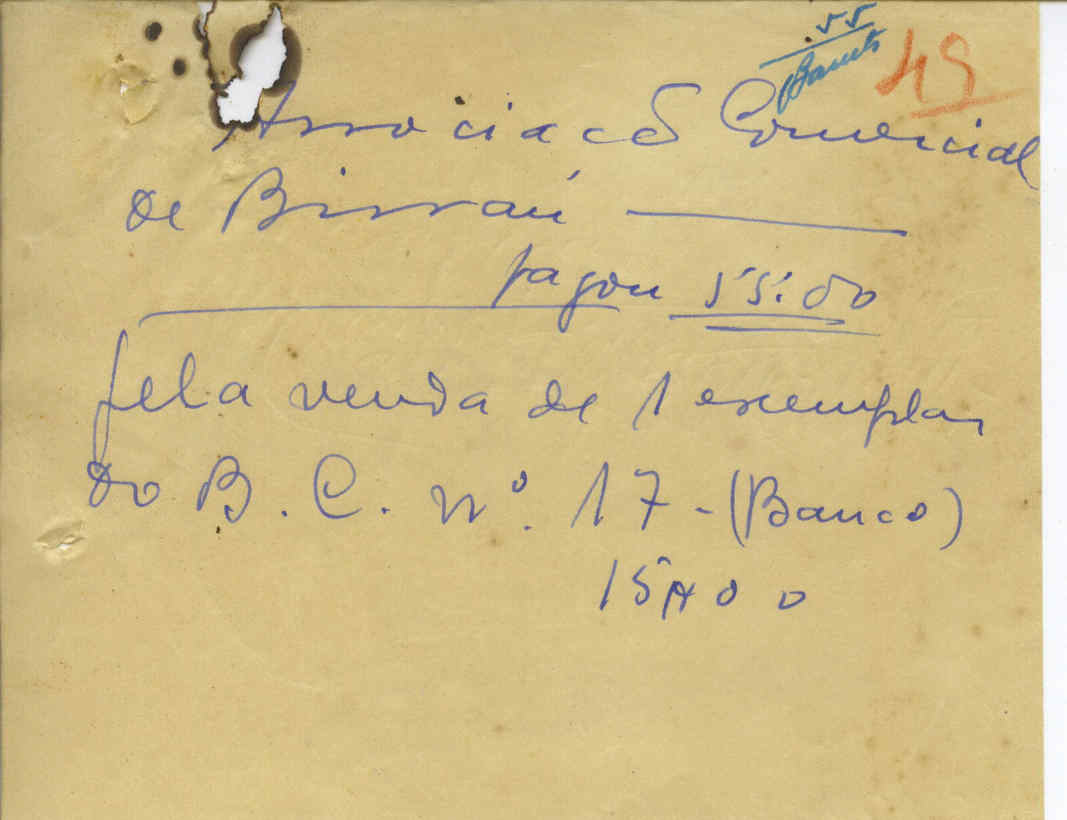 55
Banco
49
Associacão Comercial
de Bissau
pagou 55.00
pela venda de 1 exemplar
do B. C. nº. 17 - (Banco)
15H00